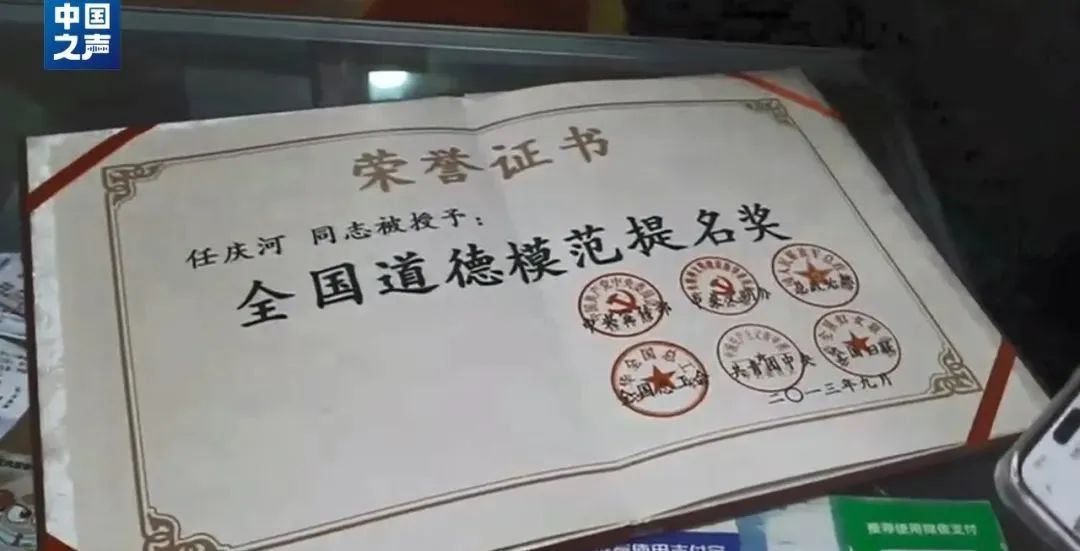 中国
之声
荣誉证书
任庆河 同志被授予：
全国道德模范提名奖
中央宣传部
中央文明办
总政治部
全国总工会
共青团中央
全国妇联
二〇一三年九月
推荐使用微信支付
使用支付宝